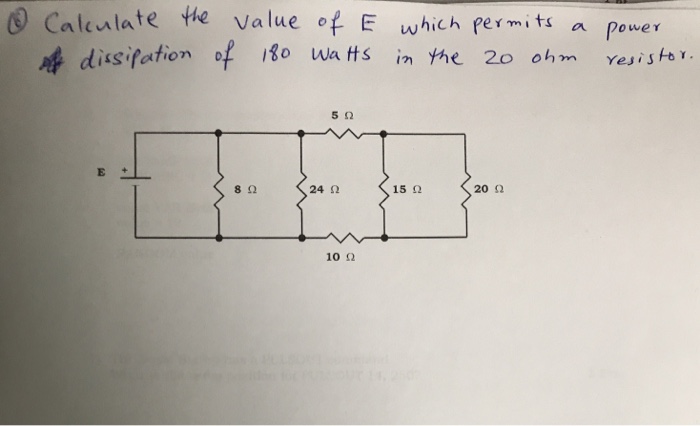 ⑥ Calculate the value of E which permits a power
dissipation of 180 Watts in the 20 ohm resistor.
5 Ω
E +
8 Ω 24 Ω 15 Ω 20 Ω
10 Ω